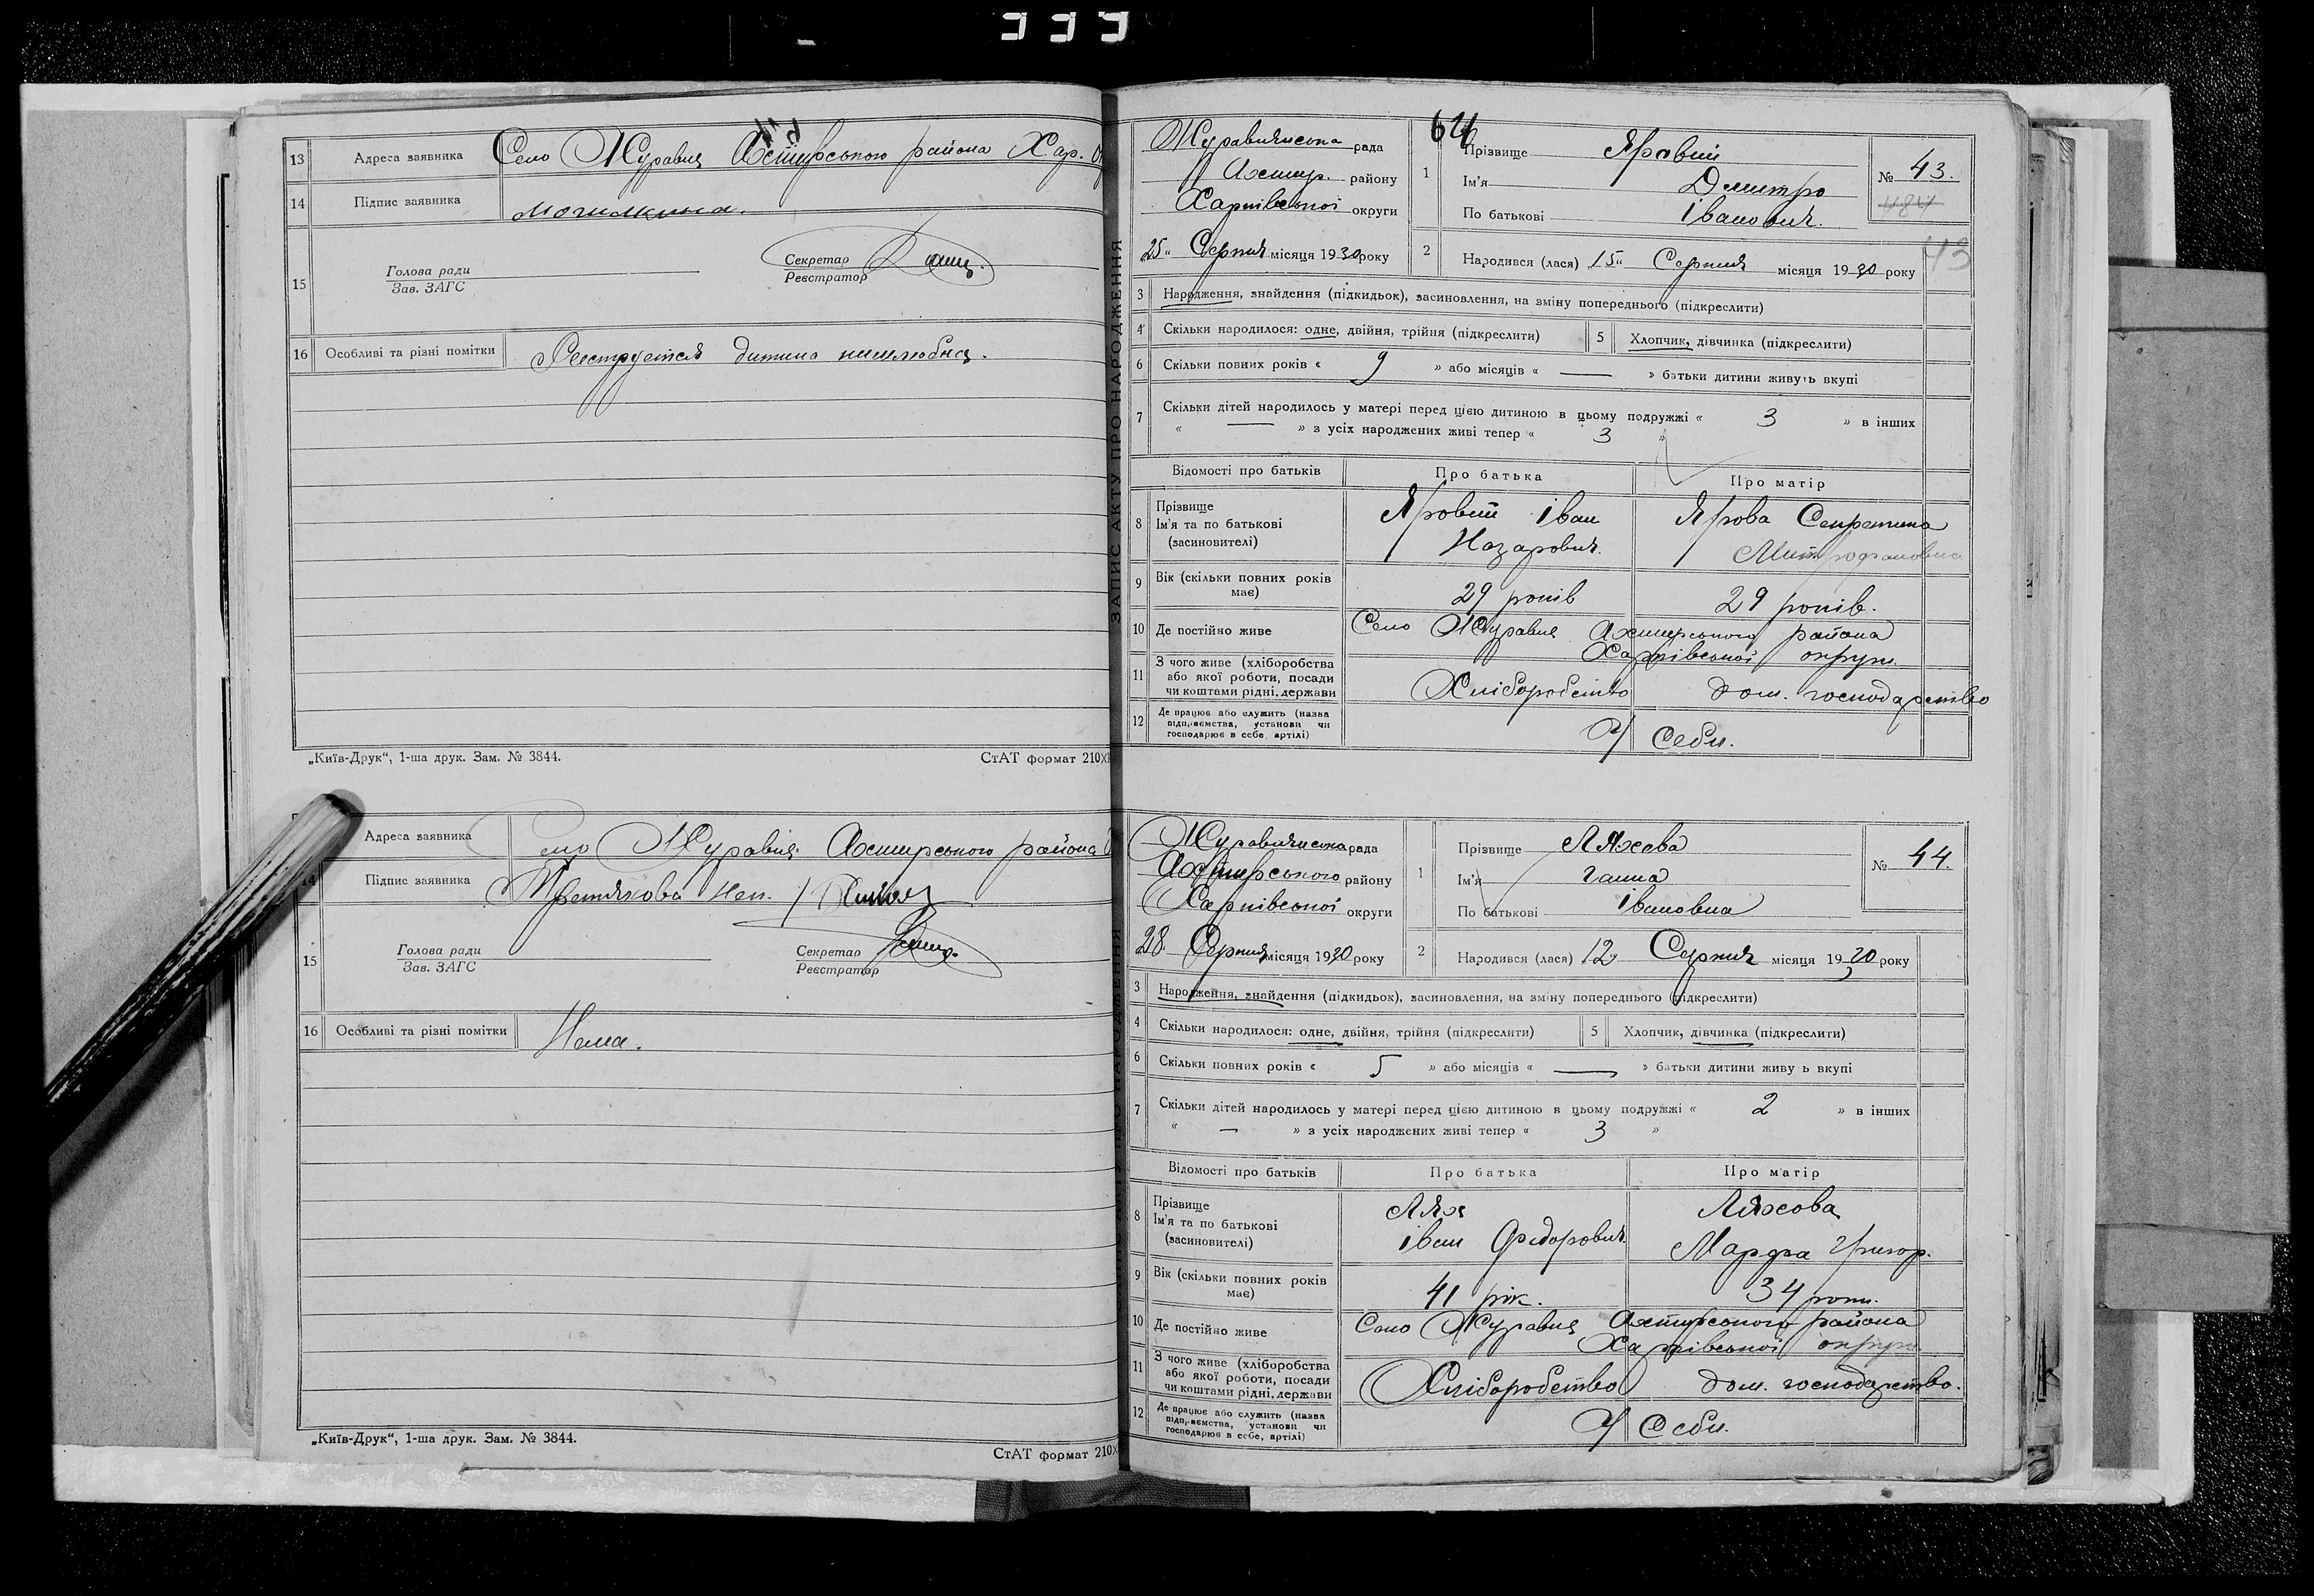 13 Адреса заявника Село Журавне Ахтирського района Хар.
14 Підпис заявника Могилкина.
15 Голова ради Зав. ЗАГС Секретар Реєстратор
16 Особливі та різні помітки Реєструється дитина
„Київ-Друк“, 1-ша друк. Зам. № 3844. СтАТ формат 210х
Адреса заявника Село Журавне Ахтирського района
14 Підпис заявника Третякова
15 Голова ради Зав. ЗАГС Секретар Реєстратор
16 Особливі та різні помітки Нема.
„Київ-Друк“, 1-ша друк. Зам. № 3844.
СтАТ формат 210х
ЗАПИС АКТУ ПРО НАРОДЖЕННЯ
64
Журавнянська рада
Ахтир. району
Харківської округи
25 Серпня місяця 1930 року
1 Прізвище Яровий
Ім'я Дмитро
По батькові Іванович.
№ 43.
43
2 Народився (лася) 15 Серпня місяця 1930 року
3 Народження, знайдення (підкидьок), засиновлення, на зміну попереднього (підкреслити)
4 Скільки народилося: одне, двійня, трійня (підкреслити) 5 Хлопчик, дівчинка (підкреслити)
6 Скільки повних років « 9 » або місяців « — » батьки дитини живуть вкупі
7 Скільки дітей народилось у матері перед цією дитиною в цьому подружжі « 3 » в інших
« — » з усіх народжених живі тепер « 3 »
Відомості про батьків Про батька Про матір
8 Прізвище Ім'я та по батькові (засиновителі) Яровий Іван Назарович. Ярова Митрофановна
9 Вік (скільки повних років має) 29 років 29 років.
10 Де постійно живе Село Журавне Ахтирського района
Харківської округи.
11 З чого живе (хліборобства або якої роботи, посади чи коштами рідні, держави Хліборобство дом. господарство
12 Де працює або служить (назва підприємства, установи чи господарює в себе, артілі) У себи.
Журавнянська рада
Ахтирського району
Харківської округи
28. Серпня місяця 1930 року
1 Прізвище Ляхова
Ім'я Ганна
По батькові Івановна
№ 44.
2 Народився (лася) 12 Серпня місяця 1930 року
3 Народження, знайдення (підкидьок), засиновлення, на зміну попереднього (підкреслити)
4 Скільки народилося: одне, двійня, трійня (підкреслити) 5 Хлопчик, дівчинка (підкреслити)
6 Скільки повних років « 5 » або місяців « — » батьки дитини живу ь вкупі
7 Скільки дітей народилось у матері перед цією дитиною в цьому подружжі « 2 » в інших
« — » з усіх народжених живі тепер « 3 »
Відомості про батьків Про батька Про матір
8 Прізвище Ім'я та по батькові (засиновителі) Лях Іван Федорович Ляхова Марфа Григор.
9 Вік (скільки повних років має) 41 рік. 34 роки.
10 Де постійно живе Село Журавне Ахтирського района
Харківської округи
11 З чого живе (хліборобства або якої роботи, посади чи коштами рідні, держави Хліборобство дом. господарство.
12 Де працює або служить (назва підприємства, установи чи господарює в себе, артілі) У Себи.